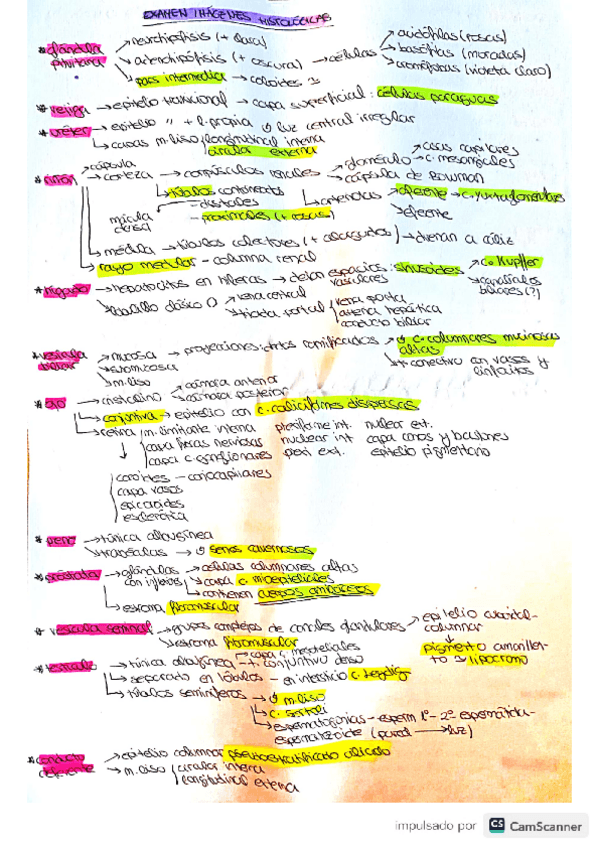 EXAMEN IMÁGENES HISTOLÓGICAS
*glándula pituitaria → neurohipófisis (+ clara)
→ adenohipófisis (+ oscura) → células → acidófilas (rosas)
→ basófilas (moradas)
→ cromófobas (violeta claro)
→ pars intermedia → coloides
*vejiga → epitelio transicional → capa superficial: células paraguas
*uréter → epitelio " + l. propia luz central irregular
→ capas m. liso longitudinal interna
circular externa
*riñón → cápsula
→ corteza → corpúsculos renales → glomérulo → asas capilares
→ c. mesangiales
→ cápsula de Bowman
→ túbulos contorneados
- distales
mácula densa
- proximales (+ rosas)
→ arteriolas → aferente → c. yuxtaglomerulares
→ eferente
→ médula → túbulos colectores (+ alargados) → drenan a cáliz
→ rayo medular - columna renal
*hígado → hepatocitos en hileras → dejan espacios vasculares: sinusoides → c. Kupffer
→ canalículos biliares (?)
→ lobulillo clásico → vena central
→ tríada portal vena porta
arteria hepática
conducto biliar
*vesícula biliar → mucosa → proyecciones: ramificados → c. columnares mucinosas altas
→ t. conectivo con vasos y linfocitos
→ submucosa
→ m. liso
*ojo → cristalino → cámara anterior
→ cámara posterior
→ conjuntiva → epitelio con c. caliciformes dispersas
→ retina m. limitante interna plexiforme int. nuclear ext.
capa fibras nerviosas nuclear int capa conos y bastones
capa c. ganglionares plexi ext. epitelio pigmentario
coroides - coriocapilares
capa vasos
epicoroides
esclerótica
*pene → túnica albugínea
→ trabéculas → senos cavernosos
*próstata → glándulas → células columnares altas
→ capa c. mioepiteliales
→ contienen cuerpos amiláceos
→ estroma fibromuscular
*vesícula seminal → grupos complejos de canales glandulares → epitelio cuboidal-columnar
→ estroma fibromuscular
→ pigmento amarillento lipocromo
*testículo → túnica albugínea → capa c. mesoteliales
→ t. conjuntivo denso
→ separado en lóbulos - en intersticio c. Leydig
→ túbulos seminíferos → m. liso
→ c. Sertoli
→ espermatogonias - esperm 1º - 2º espermátida-
espermatozoide (pared → luz)
*conducto deferente → epitelio columnar pseudoestratificado ciliado
→ m. liso circular interna
longitudinal externa
impulsado por CS CamScanner